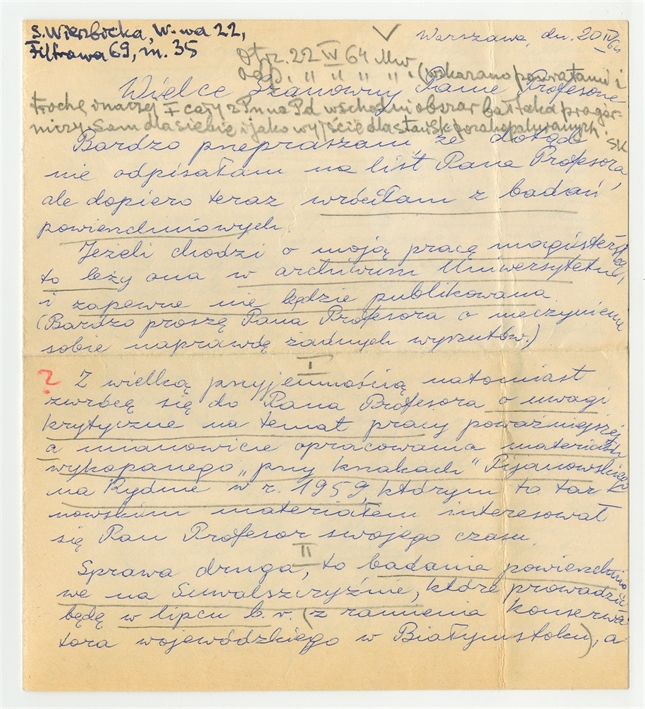 S. Wierzbicka, W-wa 22,
Filtrowa 69, m. 35
Warszawa, dn. 20 IV 64
Otrz. 22 IV 64
Odp. " " " " i (wskazano powrątami i
Wielce Szanowny Panie Profesorze
trochę inaczej I cały z Pn na Pd wschodni obszar
sam dla siebie i jako wyjście dla
SK
Bardzo przepraszam, że dotąd
nie odpisałam na list Pana Profesora,
ale dopiero teraz wróciłam z badań
powierzchniowych.
Jeżeli chodzi o moją pracę magisterską,
to leży ona w archiwum Uniwersytetu,
i zapewne nie będzie publikowana.
(Bardzo proszę Pana Profesora o nieczynienie
sobie naprawdę żadnych wyrzutów.)
I
? Z wielką przyjemnością natomiast
zwrócę się do Pana Profesora o uwagi
krytyczne na temat pracy poważniejszej
a mianowicie opracowania materiału
wykopanego "przy krzakach" Pijanowskiego
na Rydnie w r. 1959, którym to tar-
nowskim materiałem interesował
się Pan Profesor swojego czasu.
II
Sprawa druga, to badania powierzchnio-
we na Suwalszczyźnie, które prowadzić
będę w lipcu b.r. (z ramienia Konserwa-
tora wojewódzkiego w Białymstoku), a